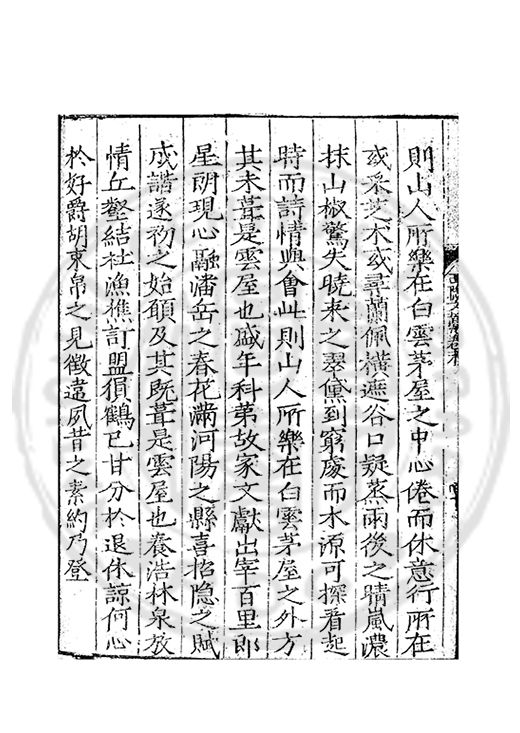 則山人所樂在白雲茅屋之中心倦而休意行所在
或采芝朮或尋蘭佩橫遮谷口疑蒸雨後之晴嵐濃
抹山椒驚失曉来之翠黛到窮處而水源可探看起
時而詩情與會此則山人所樂在白雲茅屋之外方
其未葺是雲屋也盛年科苐故家文獻出宰百里郎
星朗現心融潘岳之春花滿河陽之縣喜招隐之賦
成諧遂初之始願及其既葺是雲屋也養浩林泉放
情丘壑結社漁樵訂盟猿鶴已甘分於退休諒何心
於好爵胡束帛之見徵違夙昔之素約乃登